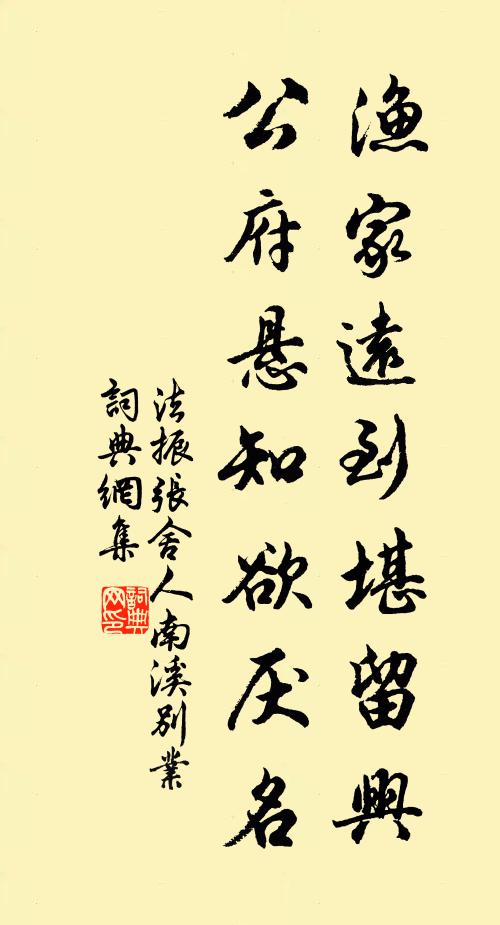 漁家遠到堪留興
公府悬知欲厌名
法振張舍人南溪別業
詞典網集
詞典网印